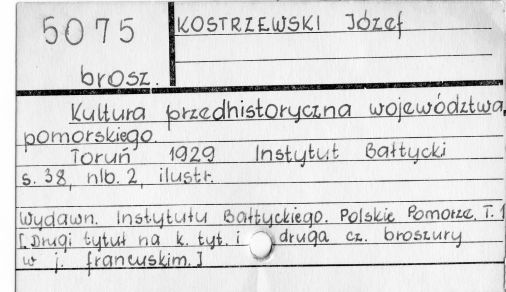 5075
brosz.
KOSTRZEWSKI Józef
Kultura przedhistoryczna województwa
pomorskiego.
Toruń 1929 Instytut Bałtycki
s. 38, nlb. 2, ilustr.
Wydawn. Instytutu Bałtyckiego. Polskie Pomorze, T. 1
[Drugi tytuł na k. tyt. i druga cz. broszury
w j. francuskim.]